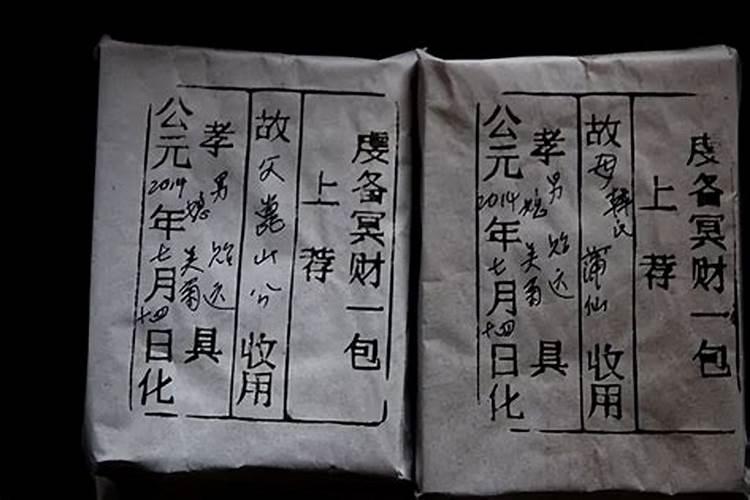 虔备冥财一包
上荐
故父嵩山公收用
孝男媳贻远美菊具
公元2014年七月十四日化
虔备冥财一包
上荐
故母韩氏蒲仙收用
孝男媳贻远美菊具
公元2014年七月十四日化